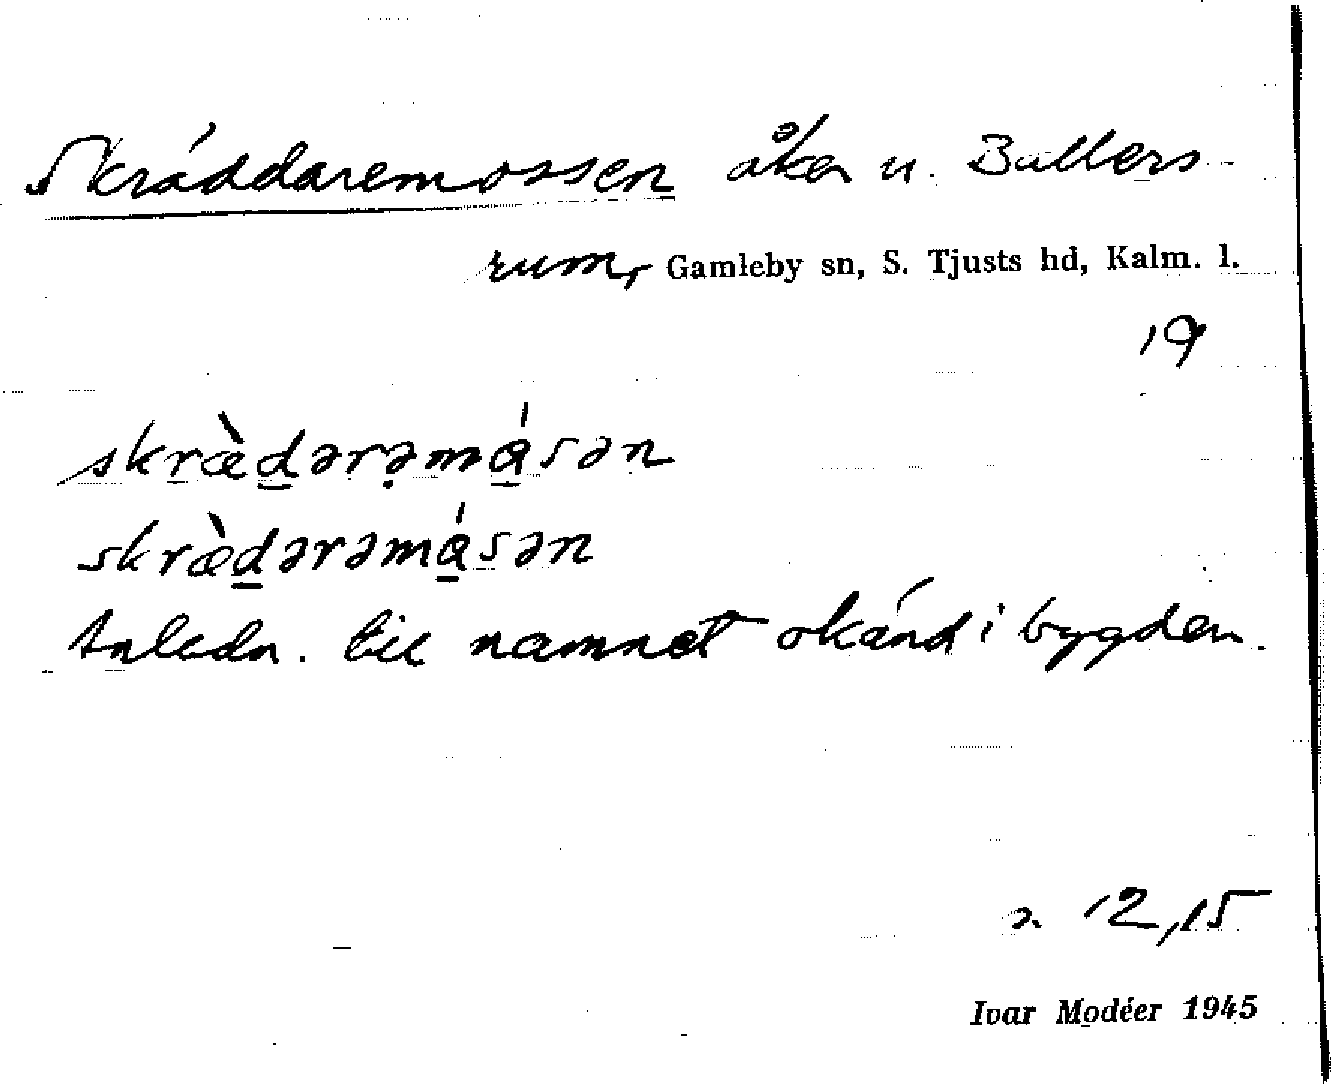 Skräddaremossen åker u. Bullers-
rum, Gamleby sn, S. Tjusts hd, Kalm. l.
19
skræ̀d̲ərəmá̲sən
skræ̀d̲ərəmá̲sən
Anledn. till namnet okänd i bygden.
12,15
Ivar Modéer 1945